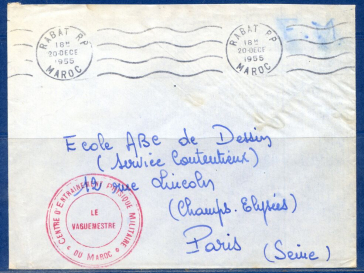 RABAT R.P.
18H
20-DEC
1955
MAROC
RABAT R.P.
18H
20-DEC
1955
MAROC
F.M.
Ecole ABC de Dessin
(Service Contentieux)
12 rue Lincoln
(Champs-Elysées)
Paris
(Seine)
CENTRE D'ENTRAINEMENT PHYSIQUE MILITAIRE
LE
VAGUEMESTRE
DU MAROC